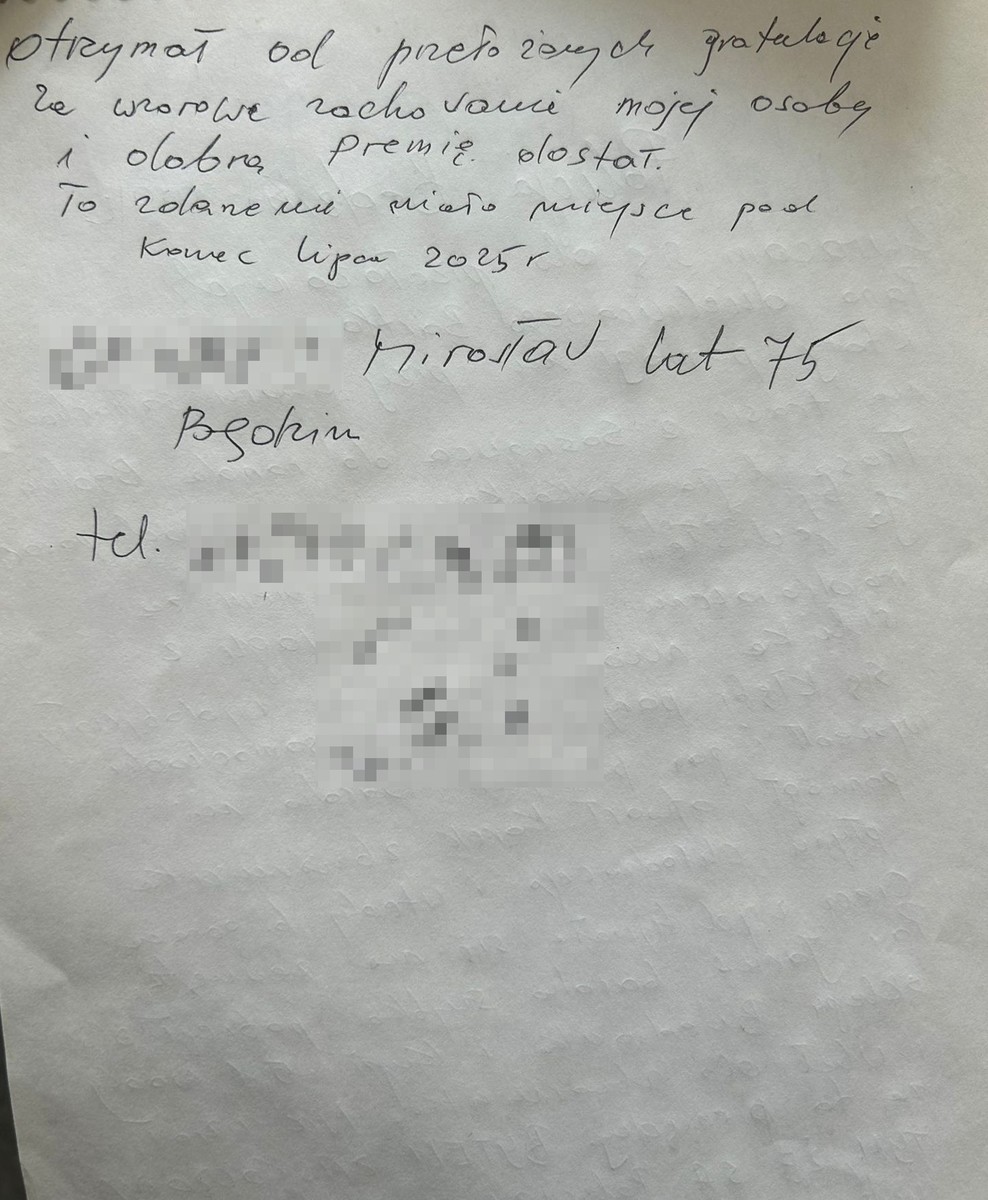 otrzymał od przełożonych gratulacje
za wzorowe zachowanie mojej osoby
i dobrą premię dostał.
To zdarzenie miało miejsce pod
koniec lipca 2025 r
Mirosław lat 75
Będzin
tel.